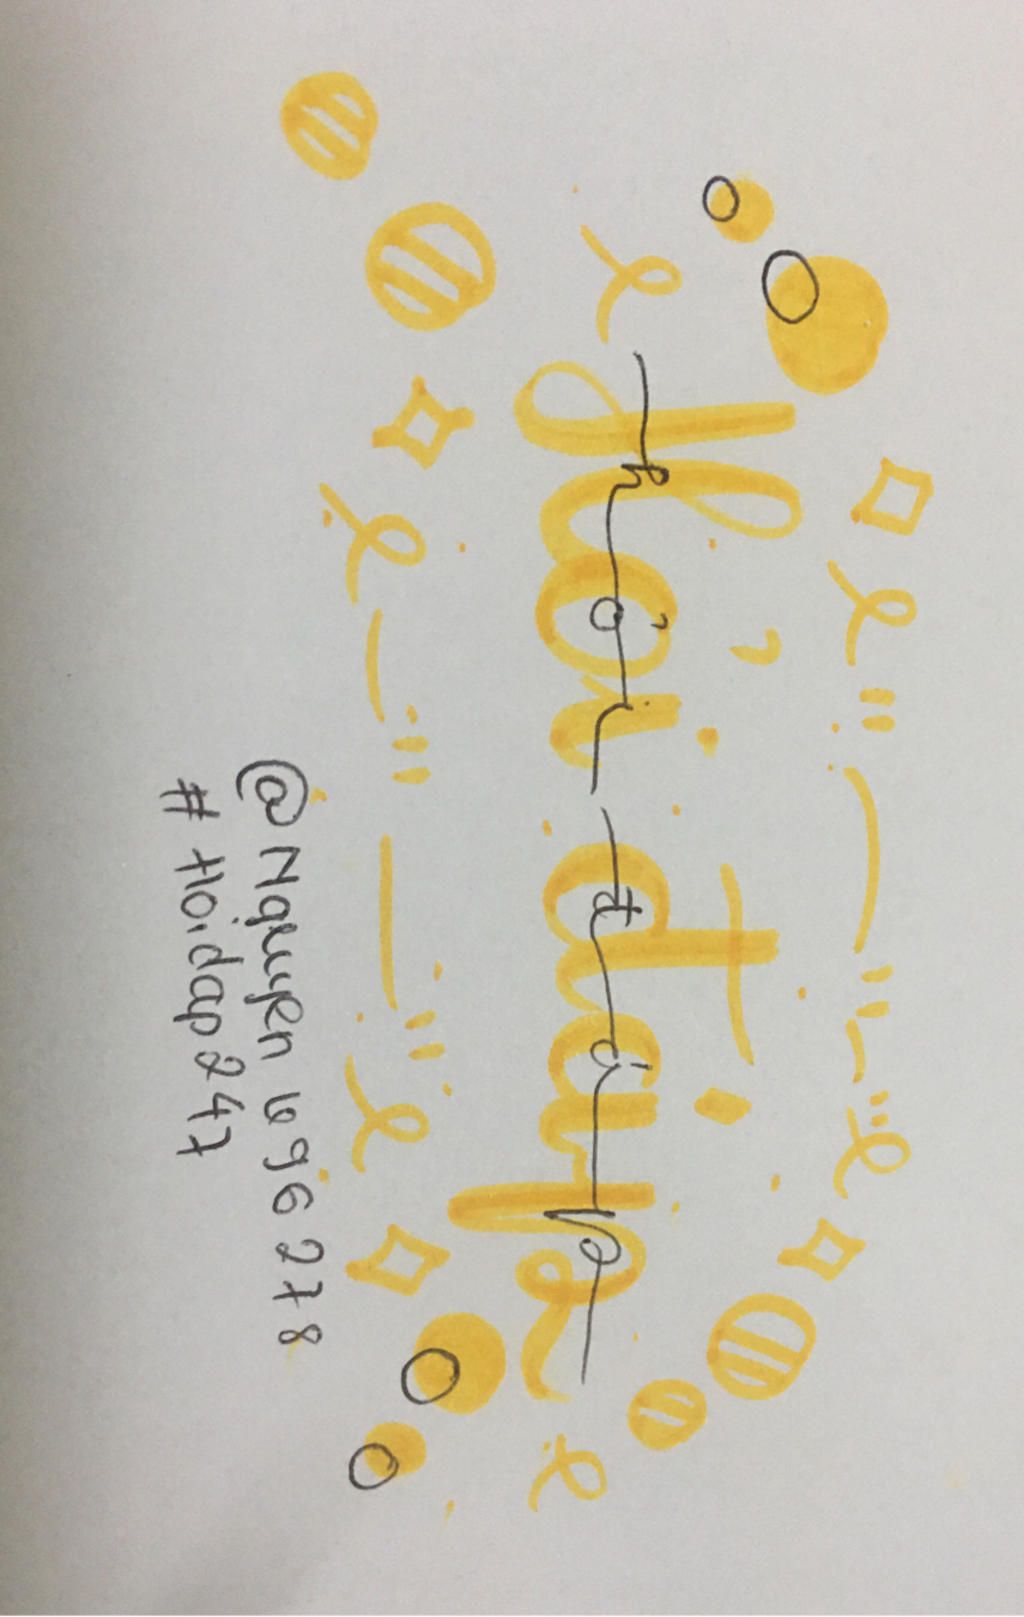 Hỏi đáp
hỏi đáp
@Nguyen696278
#Hoidap247